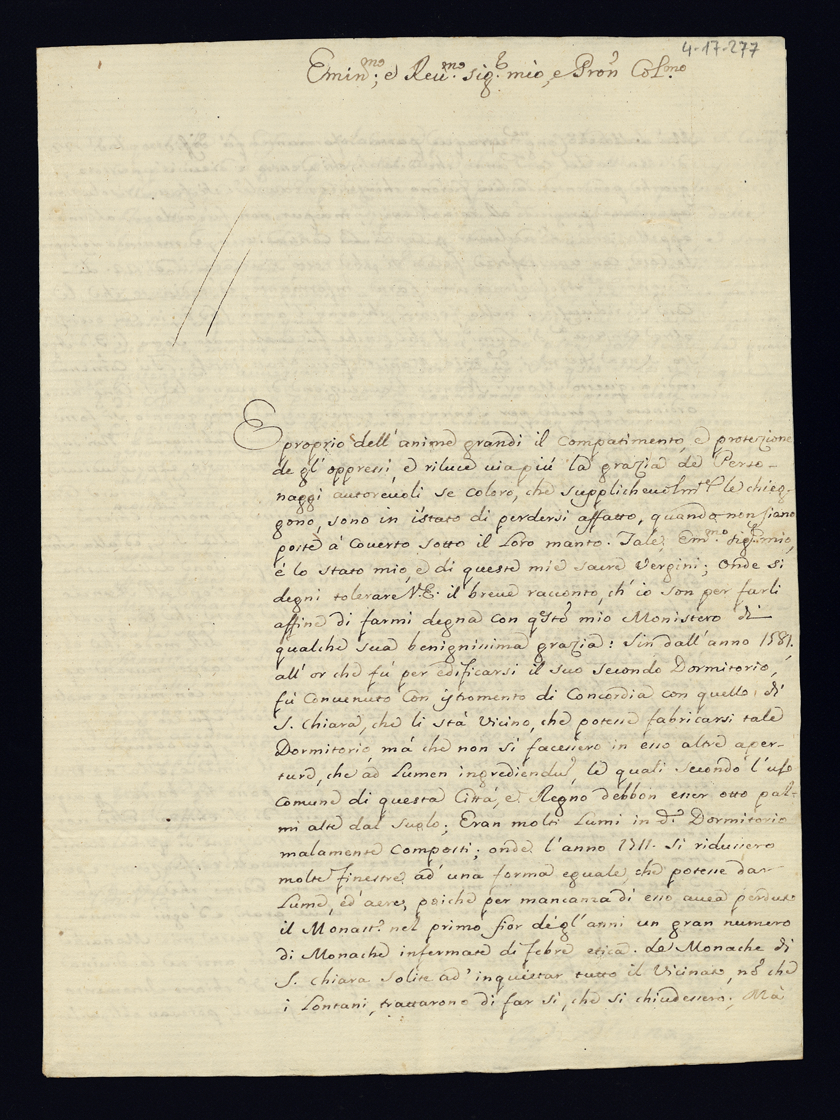 4-17-277
Emin.mo; e Reu.mo sig.r mio, e Pron Col.mo
E proprio dell' anime grandi il compatimento, e protezione
de gl' oppressi, e riluce uia più la grazia de Perso-
naggi autoreuoli se coloro, che supplicheuolm.te le chieg-
gono, sono in istato di perdersi affatto, quando non siano
poste à Couerto sotto il Loro manto. Tale, Em.mo sig.r mio,
è lo stato mio, e di queste mie sacre Vergini; Onde si
degni tolerare V.E. il breue racconto, ch' io son per farli
affine di farmi degna con q.sto mio Monistero di
qualche sua benignissima grazia: Sin dall' anno 1581.
all' or che fù per edificarsi il suo secondo Dormitorio,
fù Conuenuto Con istromento di Concordia con quello di
S. Chiara, che li stà Vicino, che potesse fabricarsi tale
Dormitorio, mà che non si facessero in esso altre aper-
ture, che ad Lumen ingrediendu, le quali secondo l'uso
Comune di questa Città, e Regno debbon esser otto pal-
mi alte dal suolo; Eran molti Lumi in d.o Dormitorio
malamente Composti; onde l'anno 1711. si ridussero
molte finestre ad' una forma eguale, che potesse dar
Lume, ed aere, poiche per mancanza di esso auea perduto
il Monast.o nel primo fior degl' anni un gran numero
di Monache infermate di febre etica. Le Monache di
S. Chiara solite ad' inquietar tutto il Vicinato, nõ che
i Lontani, trattarono di far si, che si chiudessero; Mà